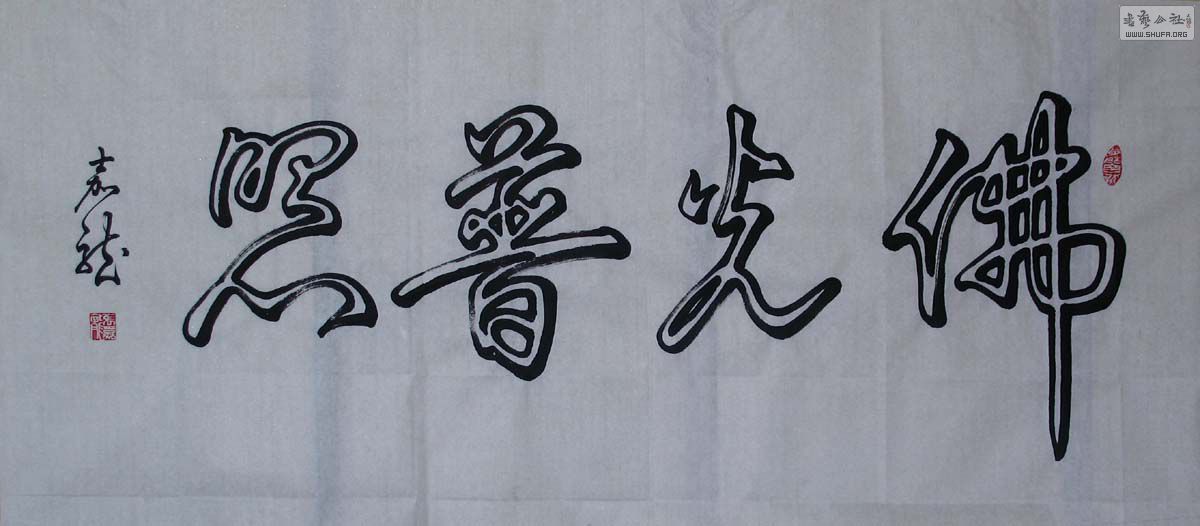 佛光普照
嘉龙
书艺公社
WWW.SHUFA.ORG